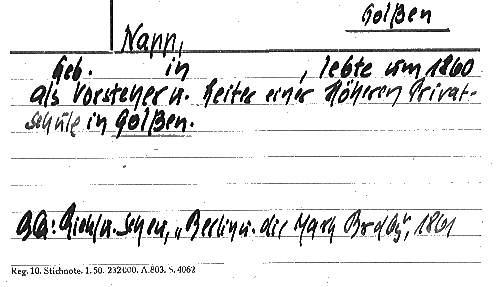 Golßen
Napp,
Geb. in , lebte um 1860
als Vorsteher u. Leiter einer Höheren Privat-
schule in Golßen.
BG: Riehl u. Scheu, „Berlin u. die Mark Brdbg", 1861
Reg. 10. Stichnote. 1. 50. 232000. A.803. S. 4062